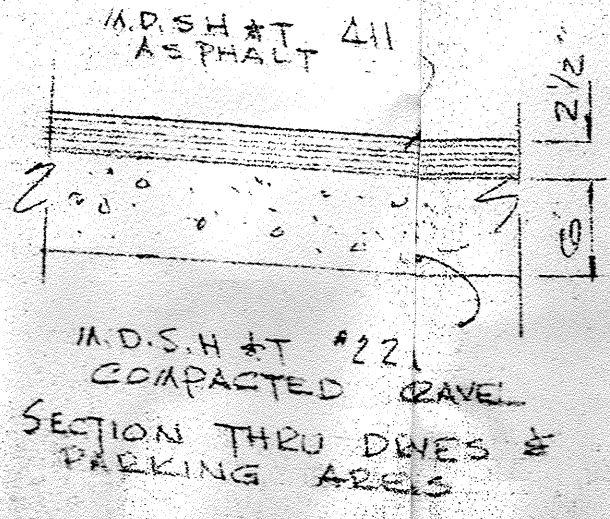 M.D.S.H & T 411
ASPHALT
2 1/2"
6
M.D.S.H & T #22
COMPACTED GRAVEL
SECTION THRU DRIVES &
PARKING AREAS